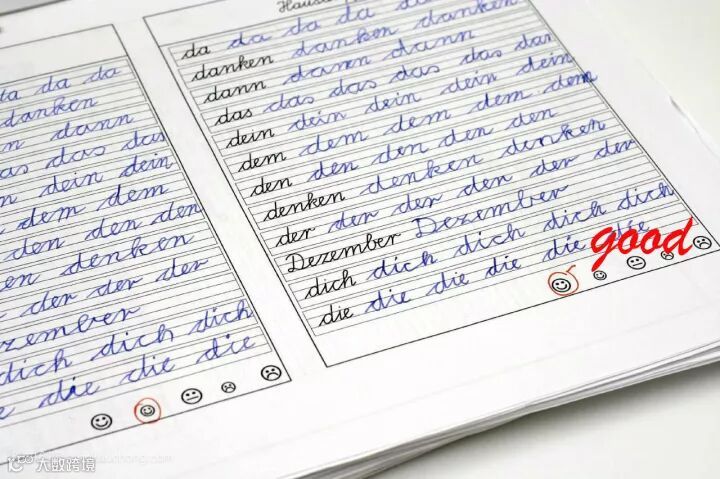 da da
danken
dann
das das
dein dein
dem dem
den den den
denken
der der der
dich dich dich
die die die
da da da da
danken danken danken
dann dann dann
das das das das das das
dein dein dein dein dein
dem dem dem dem dem
den den den den den
denken denken denken
der der der den der der
Dezember Dezember
dich dich dich dich dich
die die die die die die
good
大数跨境